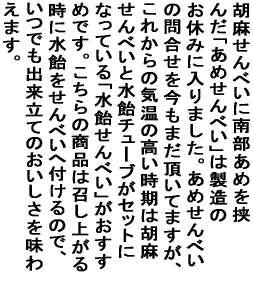 胡麻せんべいに南部あめを挟
んだ「あめせんべい」は製造の
お休みに入りました。あめせんべい
の問合せを今もまだ頂いてますが、
これからの気温の高い時期は胡麻
せんべいと水飴チューブがセットに
なっている「水飴せんべい」がおすす
めです。こちらの商品は召し上がる
時に水飴をせんべいへ付けるので、
いつでも出来立てのおいしさを味わ
えます。